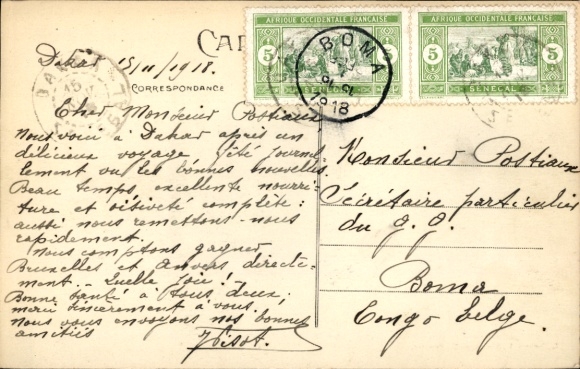 CA
CORRESPONDANCE
AFRIQUE OCCIDENTALE FRANÇAISE
5
5
SÉNÉGAL
AFRIQUE OCCIDENTALE FRANÇAISE
5
5
SÉNÉGAL
BOMA
1918
DA
15
Dakar 15/11/1918.
Cher Monsieur Postiaux
Nous voici à Dakar après un
délicieux voyage fêté journel-
lement vu les bonnes nouvelles.
Beau temps, excellente nourri-
ture et oisiveté complète :
aussi nous remettons-nous
rapidement.
Nous comptons gagner
Bruxelles et Anvers directe-
ment. - Quelle joie !
Bonne santé à tous deux,
merci sincèrement à vous,
nous vous envoyons nos bonnes
amitiés
Monsieur Postiaux
Sécrétaire particulier
du G. G.
Boma
Congo belge.